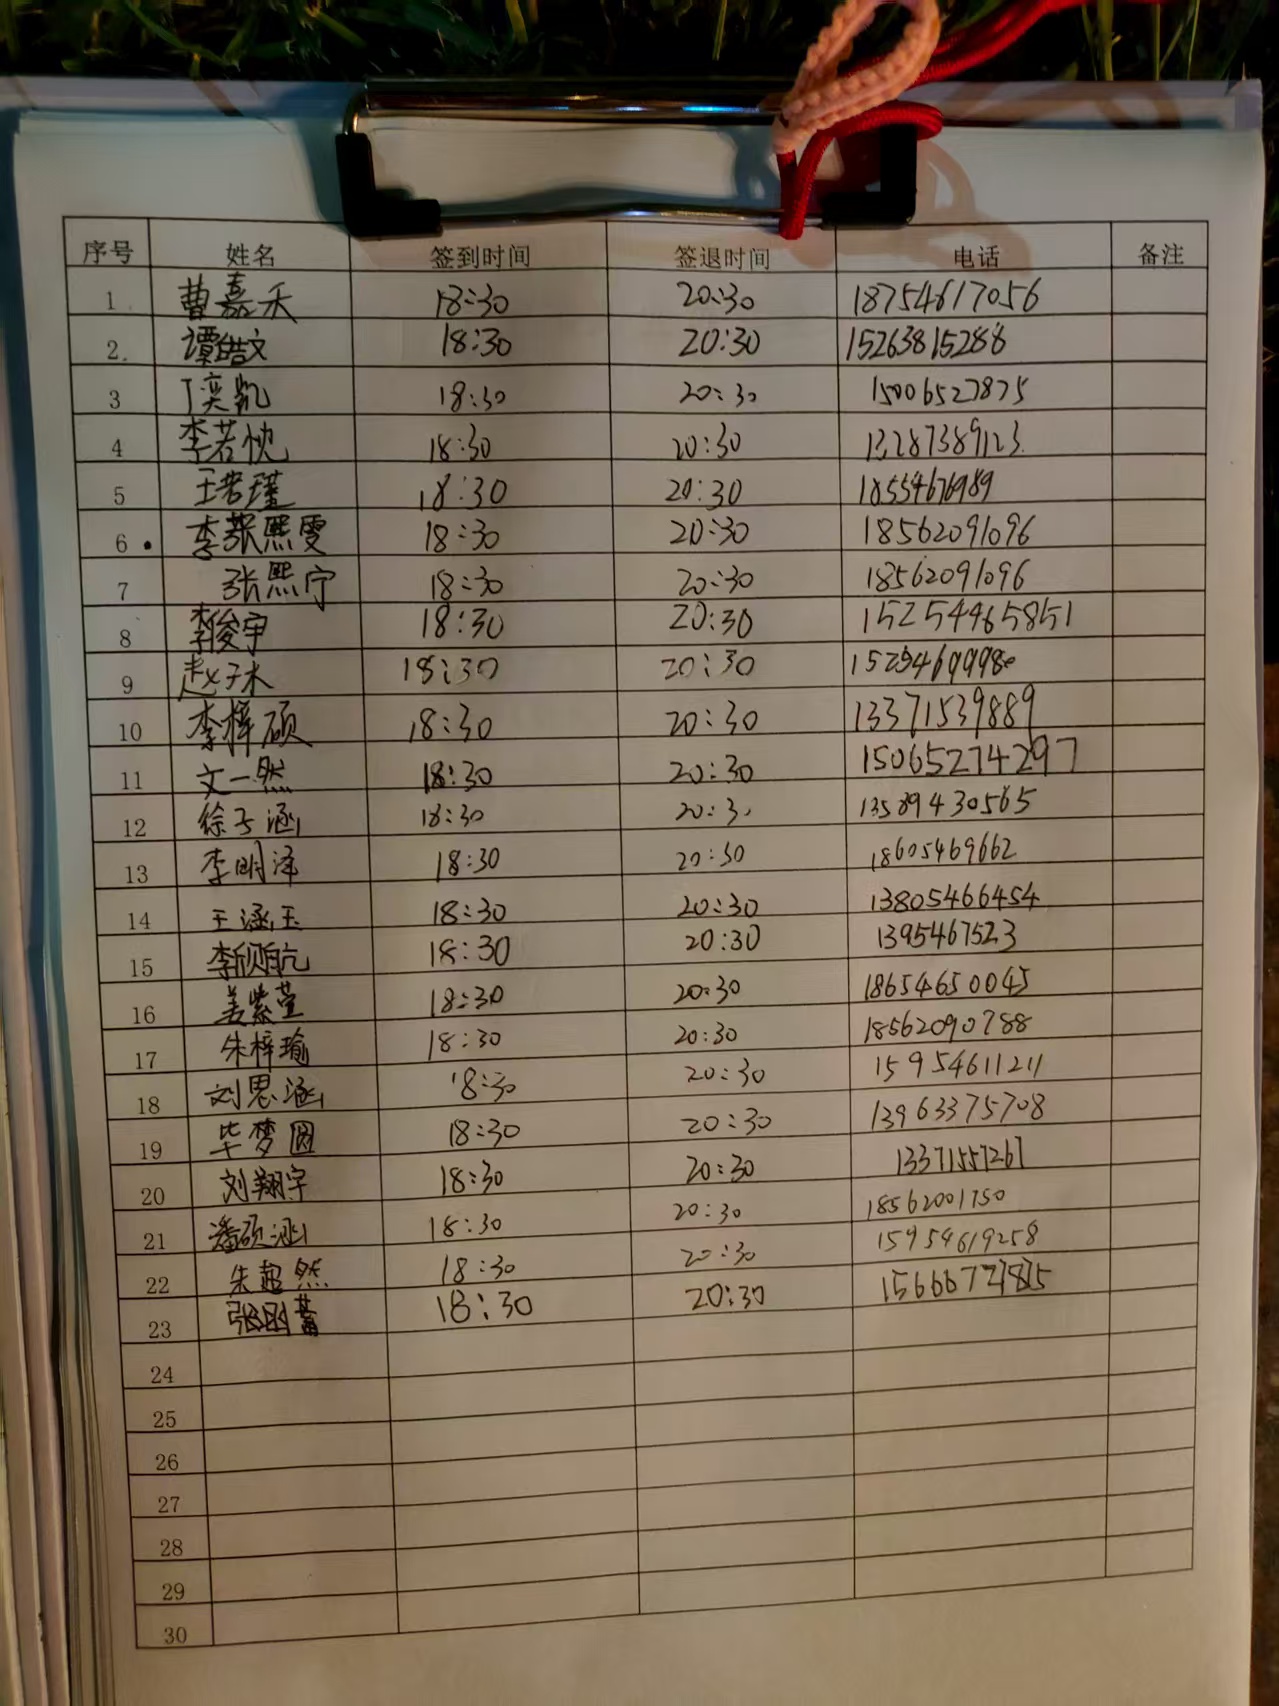 序号 姓名 签到时间 签退时间 电话 备注
1 曹嘉禾 18:30 20:30 18754617056
2 谭皓文 18:30 20:30 15263815288
3 丁奕凯 18:30 20:30 15006527875
4 李若忱 18:30 20:30 13287389123
5 王若瑾 18:30 20:30 18554676989
6 李张熙雯 18:30 20:30 18562091096
7 张熙宁 18:30 20:30 18562091096
8 李俊宇 18:30 20:30 152544465851
9 赵子木 18:30 20:30
10 李梓硕 18:30 20:30 13371539889
11 文一然 18:30 20:30 15065274297
12 徐子涵 18:30 20:30 13589430565
13 李明泽 18:30 20:30 18605469662
14 王涵玉 18:30 20:30 13805466454
15 李欣航 18:30 20:30 1395467523
16 姜紫萱 18:30 20:30 18654650045
17 朱梓瑜 18:30 20:30 18562090788
18 刘思涵 18:30 20:30 15954611211
19 毕梦圆 18:30 20:30 13963375708
20 刘翔宇 18:30 20:30 13371557267
21 潘硕涵 18:30 20:30 18562001750
22 朱超然 18:30 20:30 15954619258
23 18:30 20:30
24
25
26
27
28
29
30